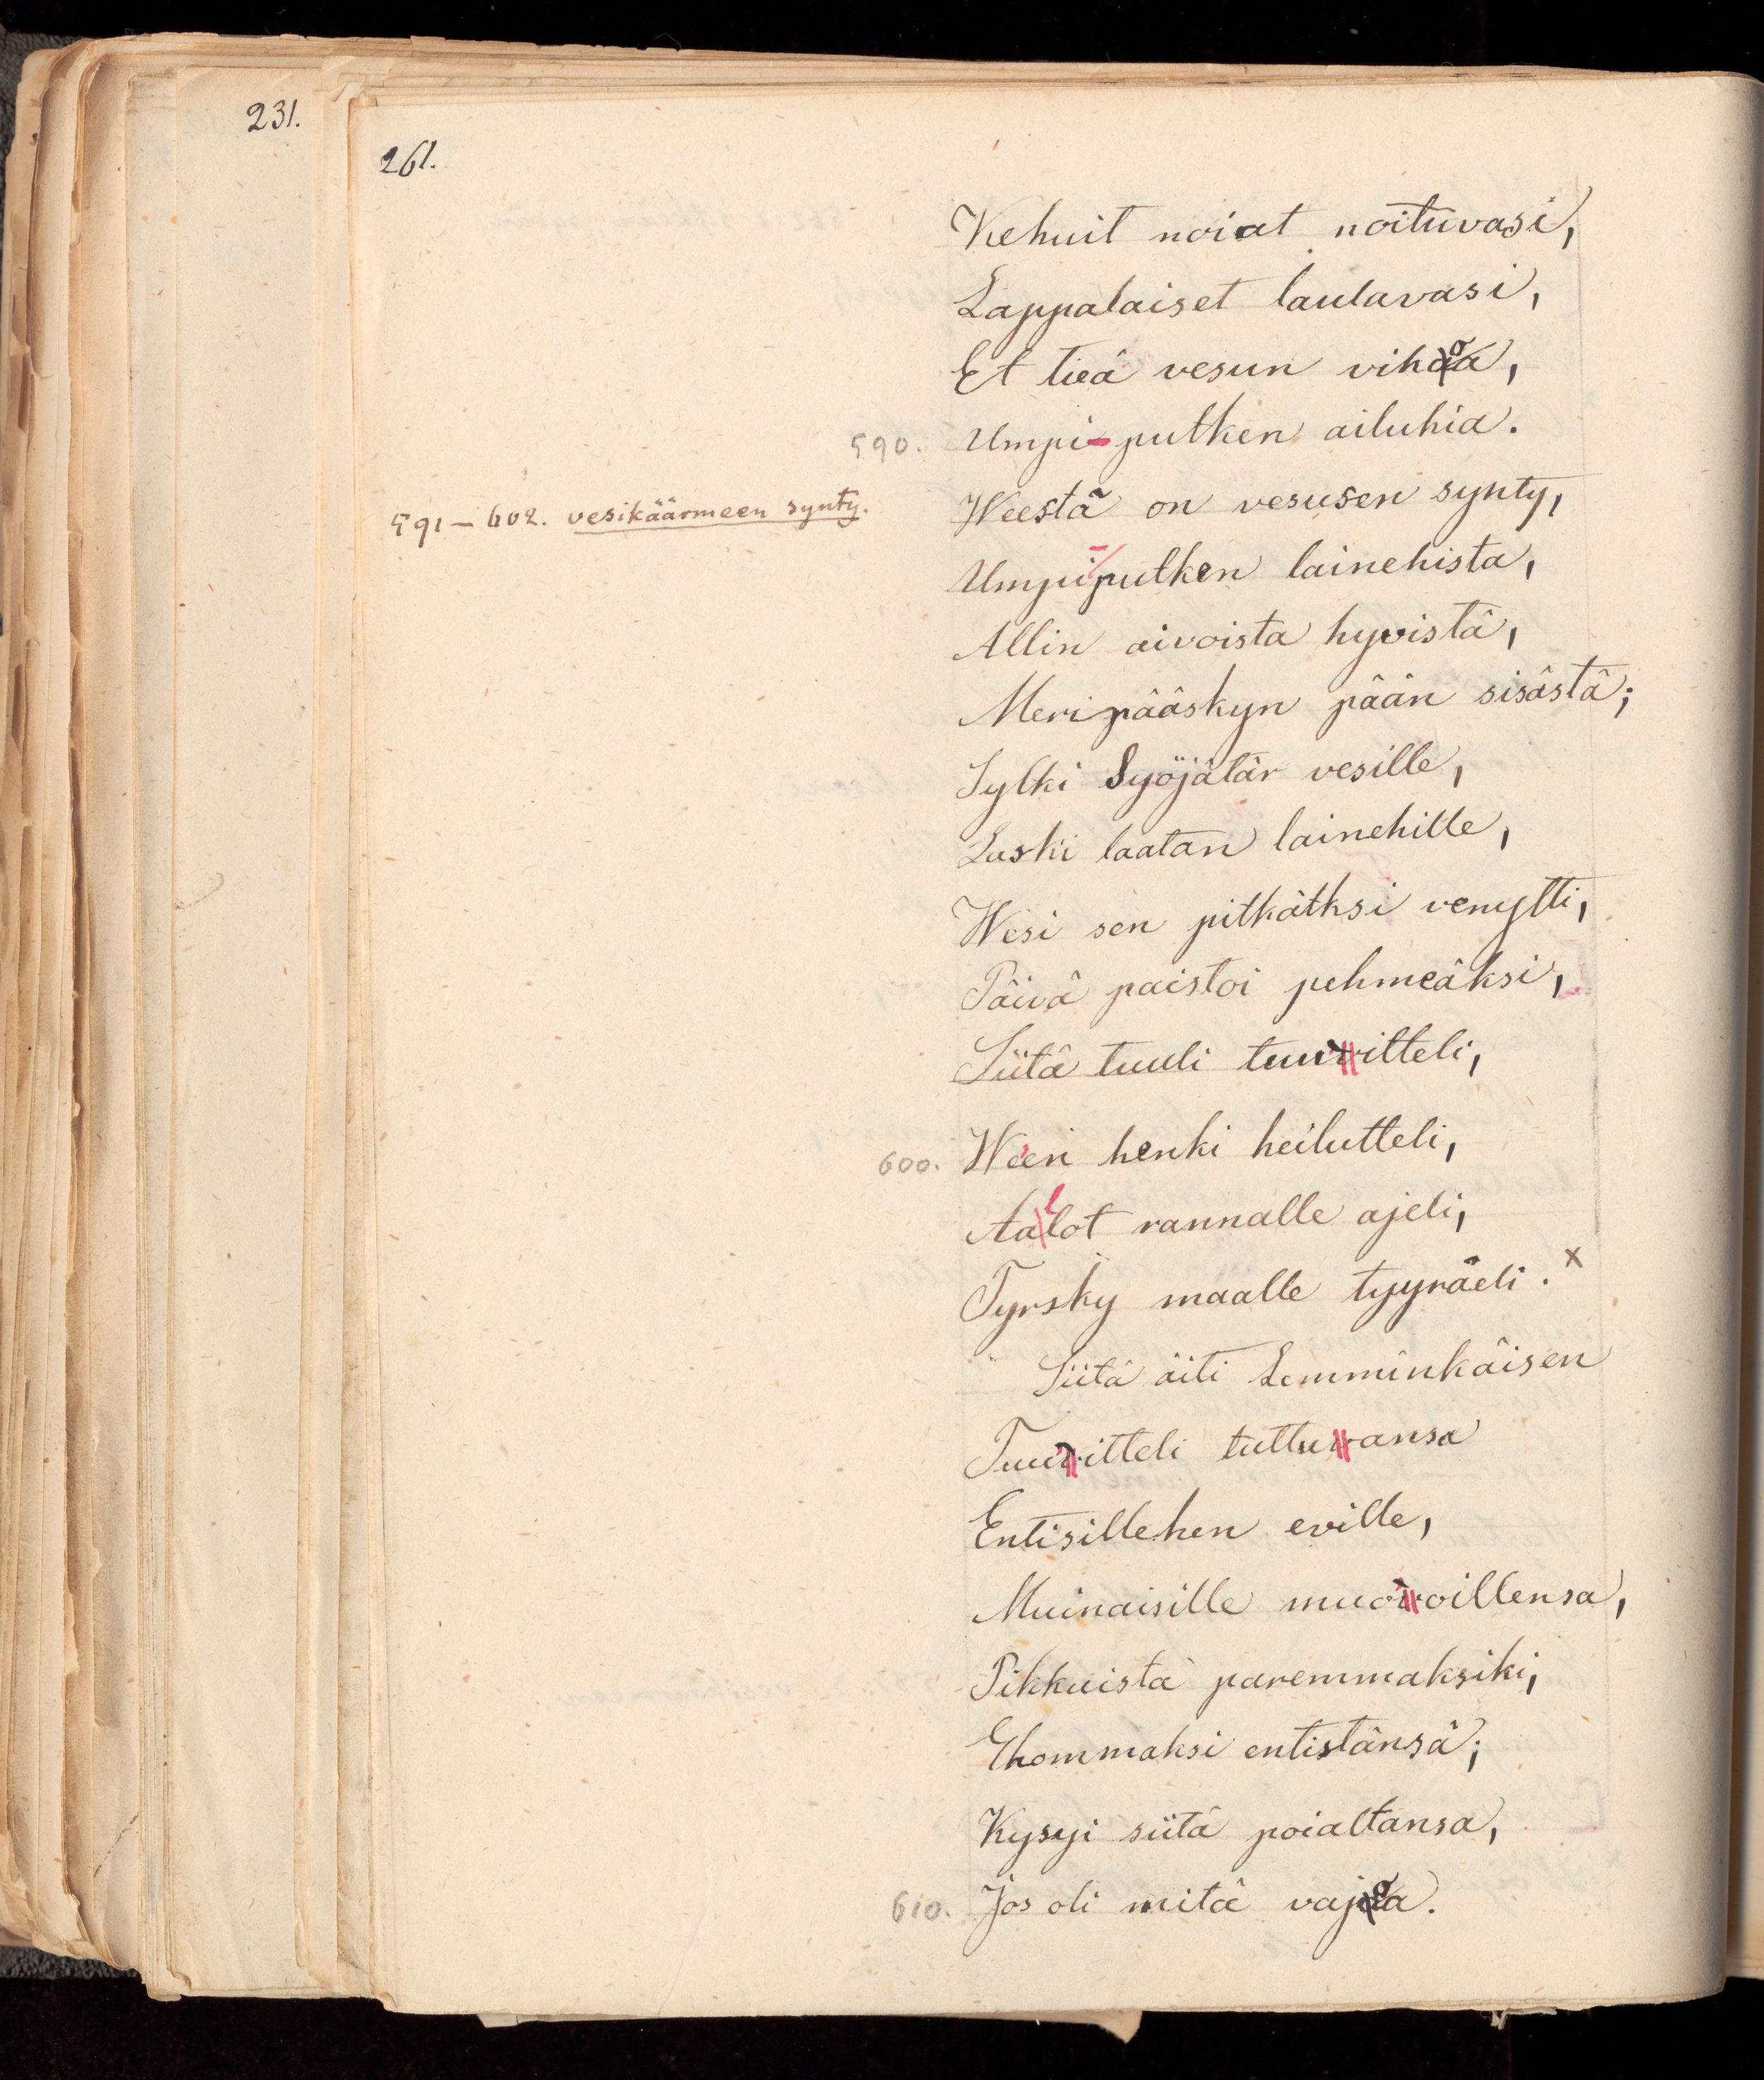 231.
261.
Kehuit noiat noituvasi,
Lappalaiset laulavasi,
Et tieä vesun vihoa,
590. Umpi-putken ailuhia.
591–602. vesikäärmeen synty.
Weestä on vesusen synty,
Umpi-putken lainehista,
Allin aivoista hyvistä,
Meripääskyn pään sisästä;
Sylki Syöjätär vesille,
Laski laatan lainehille,
Wesi sen pitkätksi venytti,
Päivä paistoi pehmeäksi,
Siitä tuuli tuuitteli,
600. Ween henki heilutteli,
Aallot rannalle ajeli,
Tyrsky maalle tyyräeli. x
Siitä äiti Lemminkäisen
Tuuitteli tuttuansa
Entisillehen eville,
Muinaisille muo'oillensa,
Pikkuista paremmaksiki,
Ehommaksi entistänsä;
Kysyi siitä poialtansa,
610. Jos oli mitä vajoa.